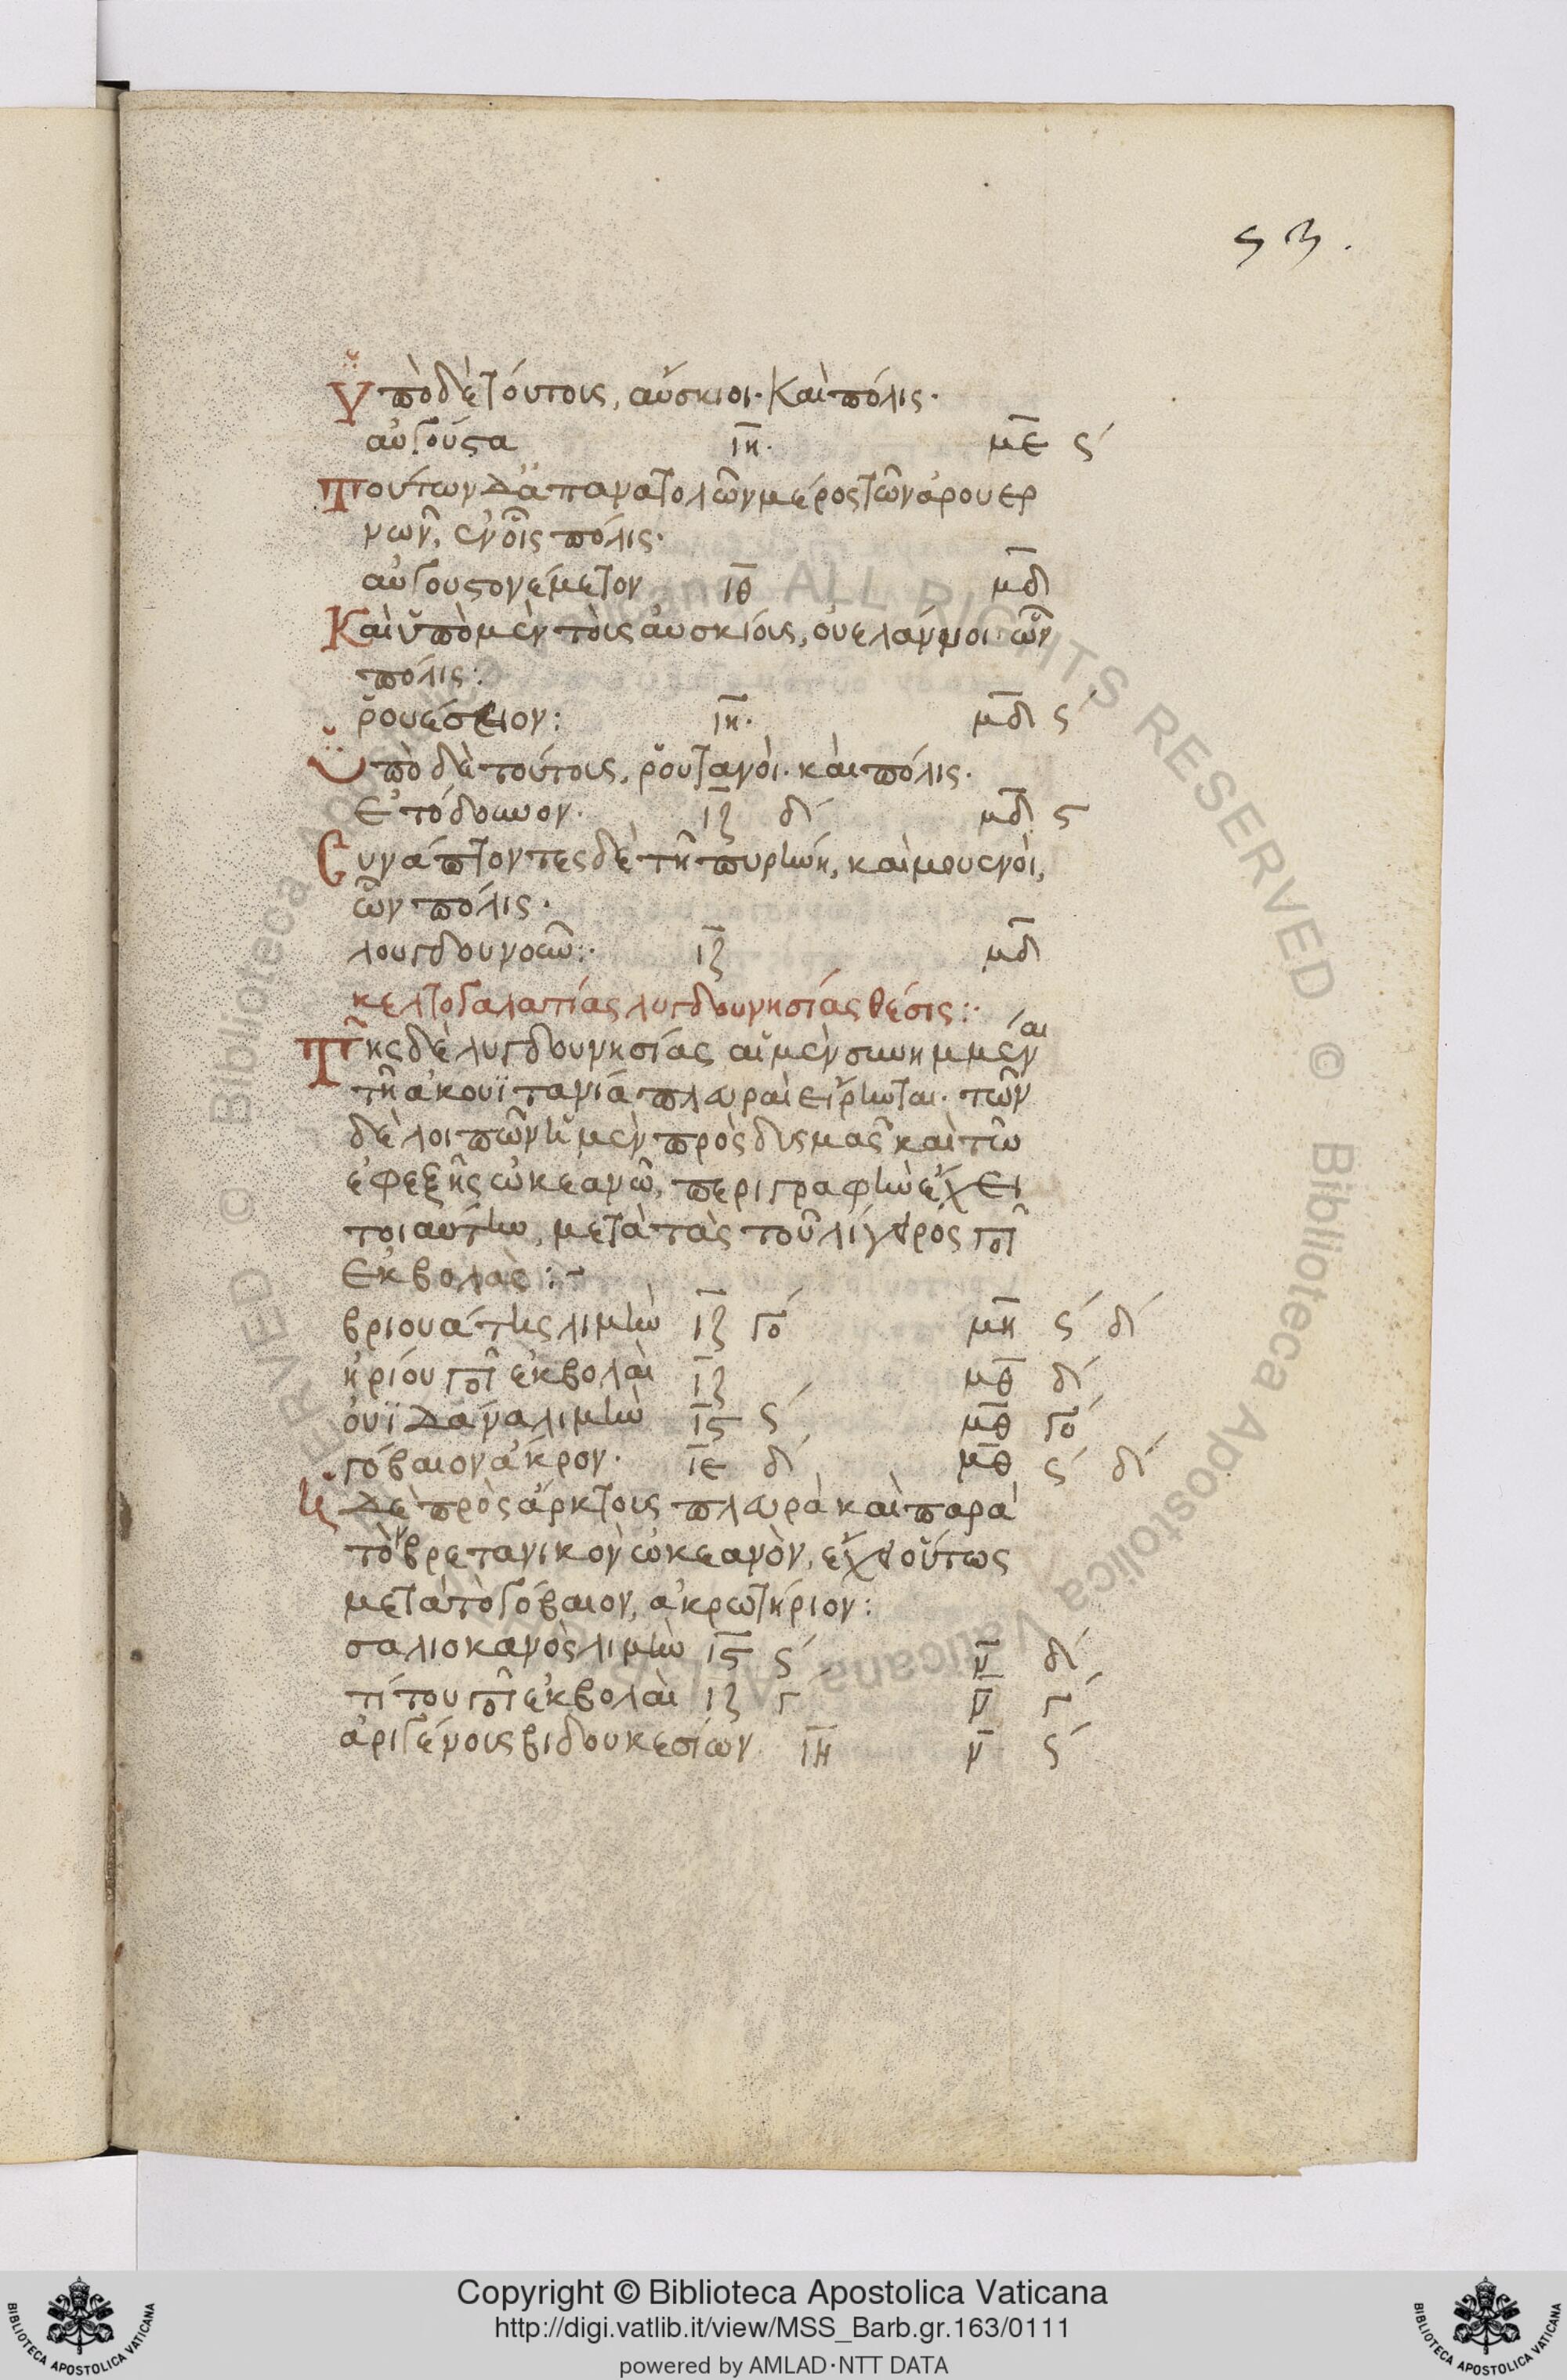 53.
Ὑπὸ δὲ τούτοις, αὔσκιοι· Καὶ πόλις·
αὐγούστα ιη· με ϛʹ
Τούτων δ' ἀπ' ἀνατολῶν μέρος τῶν ἀρουερ
νῶν, ἐν οἷς πόλις·
αὐγουστονέμετον ιθ μδ
Καὶ ὑπὸ μὲν τοὺς αὐσκίους, οὐελαύνιοι ὧν
πόλις:
ῥουέσειον: ιη· μδ ϛʹ
Ὑπὸ δὲ τούτοις, ῥουτανοὶ· καὶ πόλις·
ἐτόδουνον· ιζ δʹ μδ ϛ
Συνάπτοντες δὲ τῆ πυρήνη, καὶ μουενοὶ,
ὧν πόλις·
λουγδουνοῶ:· ιζ μδ
κελτογαλατίας λυγδουνησίας θέσις:·
Τῆς δὲ λυγδουνησίας αἱ μὲν συνημμέναι
τῆ ἀκουϊτανία πλευραὶ εἴρηνται· τῶν
δὲ λοιπῶν ἡ μὲν πρὸς δυσμαῖς καὶ τῶ
ἐφεξῆς ὠκεανῶ, περιγραφὴν ἔχει
τοιαύτην, μετὰ τὰς τοῦ λίγειρος ποτ
ἐκβολάς:-
βριουάτης λιμὴν ιζ γοʹ μη ϛʹ δʹ
ἡρίου ποτ ἐκβολαὶ ιζ μθ δʹ
οὐϊδάνα λιμὴν ιϛ ϛʹ μθ γοʹ
γόβαιον ἄκρον· ιε δʹ μθ ϛʹ δʹ
Ἡ δὲ πρὸς ἄρκτους πλευρὰ καὶ παρὰ
τὸν βρετανικὸν ὠκεανὸν, ἔχει οὕτως
μετὰ τὸ γόβαιον, ἀκρωτήριον:
σαλισκανὸς λιμὴν ιϛ ϛʹ ν δʹ
τίτου ποτ ἐκβολαὶ ιζ γʹ ν γʹ
ἀριγένους βιδουκεσίων ιη ν ϛʹ
Copyright © Biblioteca Apostolica Vaticana
http://digi.vatlib.it/view/MSS_Barb.gr.163/0111
powered by AMLAD·NTT DATA